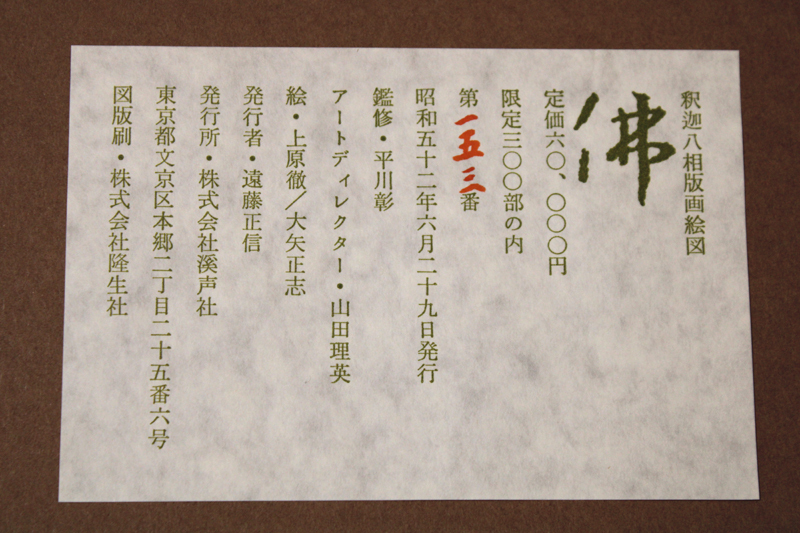 釈迦八相版画絵図
佛
定価六〇、〇〇〇円
限定三〇〇部の内
第一五三番
昭和五十二年六月二十九日発行
鑑修・平川彰
アートディレクター・山田理英
絵・上原徹／大矢正志
発行者・遠藤正信
発行所・株式会社溪声社
東京都文京区本郷二丁目二十五番六号
図版刷・株式会社隆生社